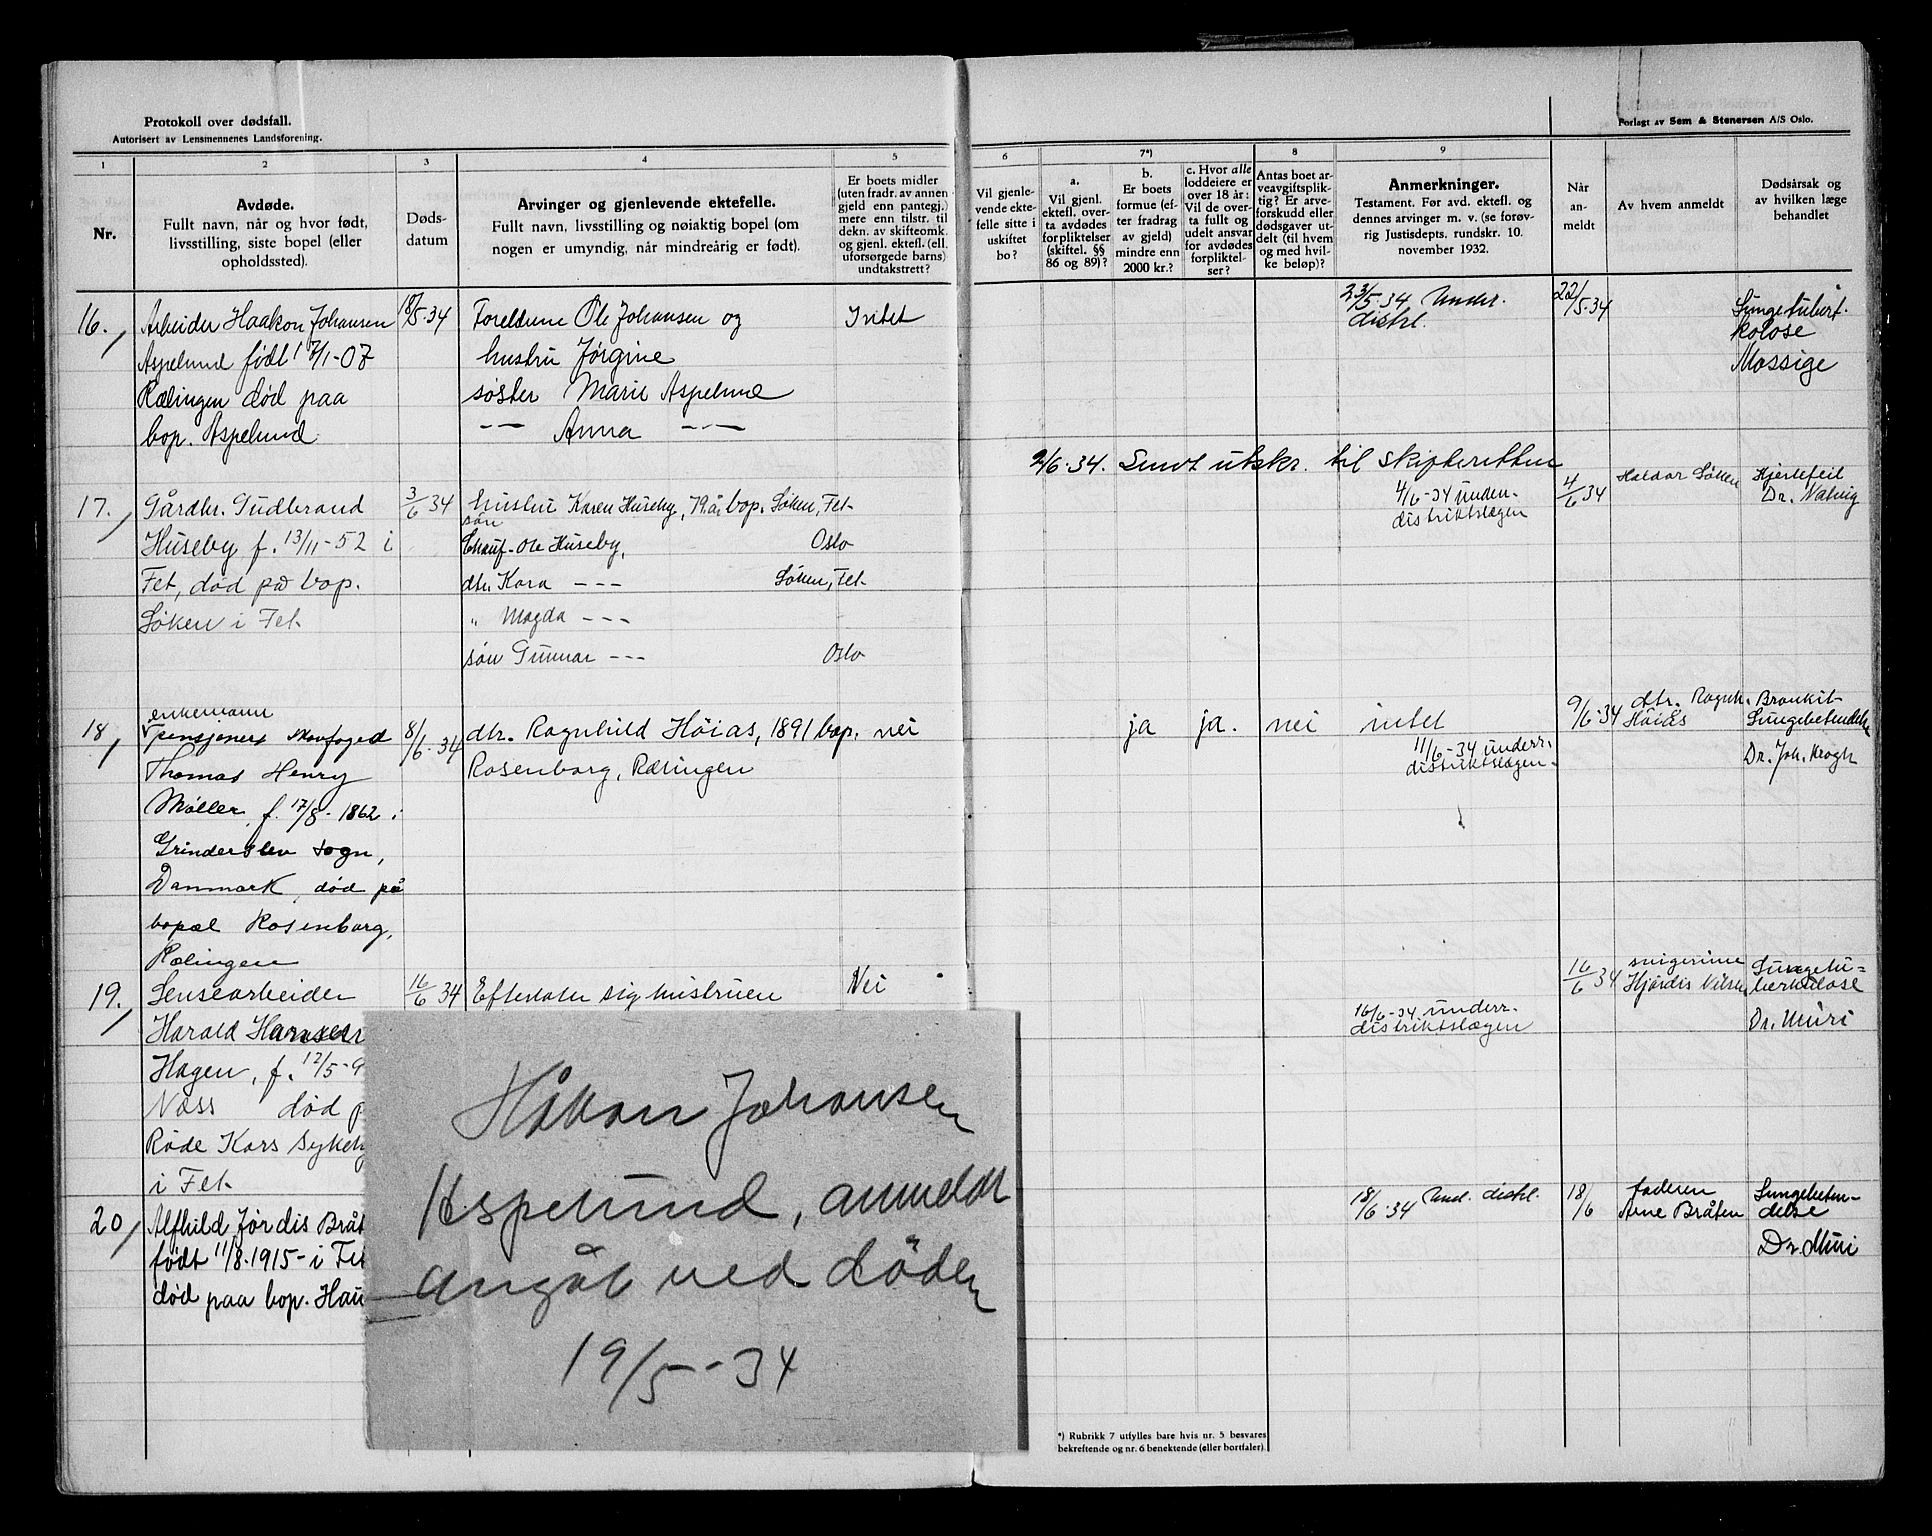 Protokoll over dødsfall.
Autorisert av Lensmennenes Landsforening.
Forlagt av Sem & Stenersen A/S Oslo.
1
2
3
4
5
6
7*)
8
9
Nr.
Avdøde.
Fullt navn, når og hvor født,
livsstilling, siste bopel (eller
opholdssted).
Døds-
datum
Arvinger og gjenlevende ektefelle.
Fullt navn, livsstilling og nøiaktig bopel (om
nogen er umyndig, når mindreårig er født).
Er boets midler
(uten fradr. av annen
gjeld enn pantegj.)
mere enn tilstr. til
dekn. av skifteomk.
og gjenl. ektefl. (ell.
uforsørgede barns)
undtakstrett?
Vil gjenle-
vende ekte-
felle sitte i
uskiftet
bo?
a.
Vil gjenl.
ektefl. over-
ta avdødes
forpliktelser
(skiftel. §§
86 og 89)?
b.
Er boets
formue (ef-
ter fradrag
av gjeld)
mindre enn
2000 kr.?
c. Hvor alle
loddeiere er
over 18 år:
Vil de over-
ta fullt og
udelt ansvar
for avdødes
forpliktel-
ser?
Antas boet ar-
veavgiftsplik-
tig? Er arve-
forskudd eller
dødsgaver ut-
delt (til hvem
og med hvil-
ke beløp)?
Anmerkninger.
Testament. Før avd. ektefl. og
dennes arvinger m. v. (se forøv-
rig Justisdepts. rundskr. 10.
november 1932.
Når
an-
meldt
Av hvem anmeldt
Dødsårsak og
av hvilken læge
behandlet
16.
Arbeider Haakon Johansen
Aspelund født 7/1-07
Rælingen død paa
bop. Aspelund.
18/5-34
Foreldrene Ole Johansen og
hustru Jørgine
søster Marie Aspelund
-"- Anna -"-
Intet
23/5-34 Under.
distrl.
22/5-34
Lungetuber-
kolose
Mossige
2/6-34. Sendt utskr. til skifteretten
17.
Gårdbr. Gudbrand
Huseby f. 13/11-52 i
Fet, død på bop.
Løken i Fet
3/6 34
Hustru Karen Huseby, 79 år, bop. Løken, Fet
søn
Chauf. Ole Huseby, Oslo
dtr. Kara --- Løken, Fet
" Magda ---
søn Gunnar --- Oslo
4/6-34 under.
distriktslægen
4/6 34
Halvor Løken
Hjertefeil
Dr. Natvig
18,
enkemann
pensjonert skovfoged
Thomas Henry
Møller, f. 17/8-1862 i
Grinderslev sogn,
Danmark, død på
bopæl Rosenborg,
Rælingen
8/6-34
dtr. Ragnhild Höiås, 1891 bop.
Rosenborg, Rælingen
nei
ja ja. nei intet
11/6-34 underr.
distriktslægen
9/6-34
dtr. Ragnh.
Höiås
Bronkit-
Lungebetendelse
Dr. Joh. Krogh
19.
Lensearbeider
Harald Hansen
Hagen, f. 12/5-9
Næss død p
Røde Kors Sykeh
i Fet
16/6 34
Efterlater sig hustruen
Nei
16/6-34 underr.
distriktslægen
16/6 34
svigerinne
Hjørdis Nilsen
Lungetu=
berkulose
Dr. Muri
20,
Alfhild Jørdis Bråt
født 11/8.1915- i Fet
død paa bop. Hau
18/6-34 Und. distrl.
18/6
faderen
Arne Bråten
Lungebeten-
delse
Dr. Muri
Håkon Johansen
Aspelund, anmeldt
angåt ved døden
19/5-34
*) Rubrikk 7 utfylles bare hvis nr. 5 besvares
bekreftende og nr. 6 benektende (eller bortfaler).